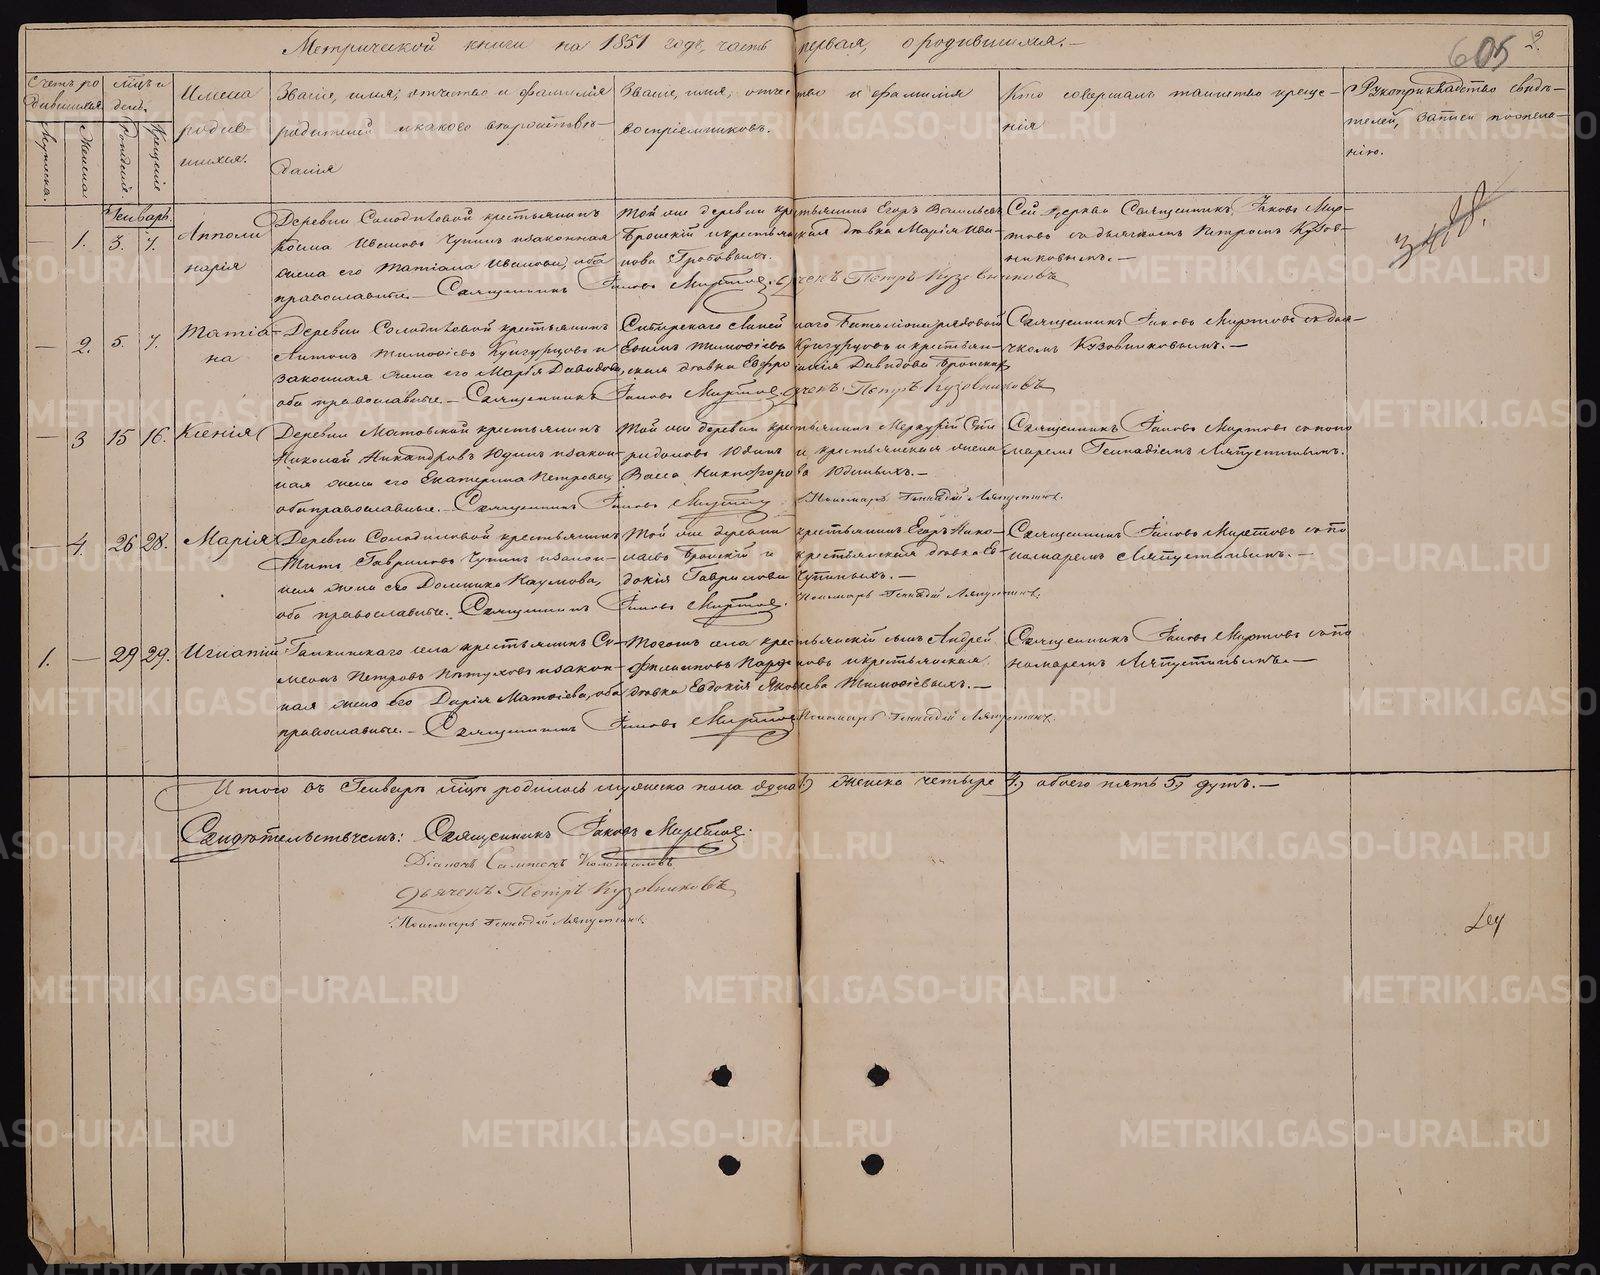 Метрической книги на 1851 годъ, часть первая, о родившихся.—
605 2.
Счетъ ро-
дившихся.
Мужеска.
Женска.
мѣсяцъ и
день.
Рожденія.
Крещенія
Имена
родив-
шихся.
Званіе, имя, отчество и фамилія
родителей и какого вѣроисповѣ-
данія
Званіе, имя, отчество и фамилія
воспріемниковъ.
Кто совершалъ таинство креще-
нія
Рукоприкладство свидѣ-
телей, записи по жела-
нію.
Генварь.
— 1. 3. 7.
Апполи
нарія
Деревни Солодиловой крестьянинъ
Косма Ивановъ Чупинъ и законная
жена его Татіана Иванова, оба
православные.— Священникъ Іаковъ Миртовъ.
Той же деревни крестьянинъ Егоръ Васильевъ
Бронскій и крестьянская дѣвка Марія Ива-
нова
Дьячекъ Петръ Кузовниковъ
Сей церкви Священникъ Іаковъ Мир-
товъ съ дьячкомъ Петромъ Кузов-
никовымъ.—
— 2. 5. 7.
Татіа-
на
Деревни Солодиловой крестьянинъ
Антонъ Тимофѣевъ Кунгурцовъ и
законная жена его Марія Давидова,
оба православные.— Священникъ Іаковъ Миртовъ.
Сибирскаго Линейнаго Баталіона рядовой
Евсимъ Тимофѣевъ Кунгурцовъ и крестьян-
ская дѣвка Евфросинія Давидова Бронских
Дьячекъ Петръ Кузовниковъ
Священникъ Іаковъ Миртовъ съ дья-
чкомъ Кузовниковымъ.—
— 3 15 16.
Ксенія
Деревни Матовской крестьянинъ
Николай Никандровъ Юдинъ и закон-
ная жена его Екатерина Петрова,
оба православные.— Священникъ Іаковъ Миртовъ
Той же деревни крестьянинъ Меркурій Спи
ридоновъ Юдинъ и крестьянская жена
Васса Никифорова Юдиныхъ.—
Пономарь Геннадій Ляпустинъ.
Священникъ Іаковъ Миртовъ съ поно
маремъ Геннадіемъ Ляпустинымъ.
— 4. 26 28.
Марія
Деревни Солодиловой крестьянинъ
Титъ Гавриловъ Чупинъ и закон-
ная жена его Домника Наумова,
оба православные. Священникъ Іаковъ Миртовъ.
Той же деревни крестьянинъ Егоръ Нико-
лаевъ Бронскій и крестьянская дѣвка Ев-
докія Гаврилова Чупиныхъ.—
Пономарь Геннадій Ляпустинъ.
Священникъ Іаковъ Миртовъ съ по
номаремъ Ляпустинымъ.—
1. — 29 29.
Игнатій
села крестьянинъ Си-
меонъ Петровъ Пѣтуховъ и закон-
ная жена его Дарія Матвѣева, оба
православные.— Священникъ Іаковъ Миртовъ
Тогожъ села крестьянскій сынъ Андрей
Филиповъ и крестьянская
дѣвка Евдокія Яковлева Тимофѣевыхъ.—
Пономарь Геннадій Ляпустинъ.
Священникъ Іаковъ Миртовъ съ по
номаремъ Ляпустинымъ.—
Итого въ Генварѣ мѣсяцѣ родилось мужеска пола одинъ 1, женска четыре 4, обоего пять 5, душъ.—
Свидѣтельствуемъ: Священникъ Іаковъ Миртовъ.
Діаконъ
Дьячекъ Петръ Кузовниковъ
Пономарь Геннадій Ляпустинъ.
METRIKI.GASO-URAL.RU